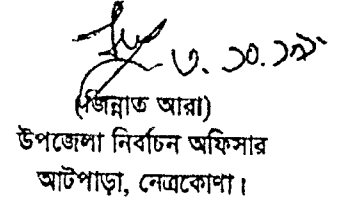 (জিন্নাত আরা)
উপজেলা নির্বাচন অফিসার
আটপাড়া, নেত্রকোণা।